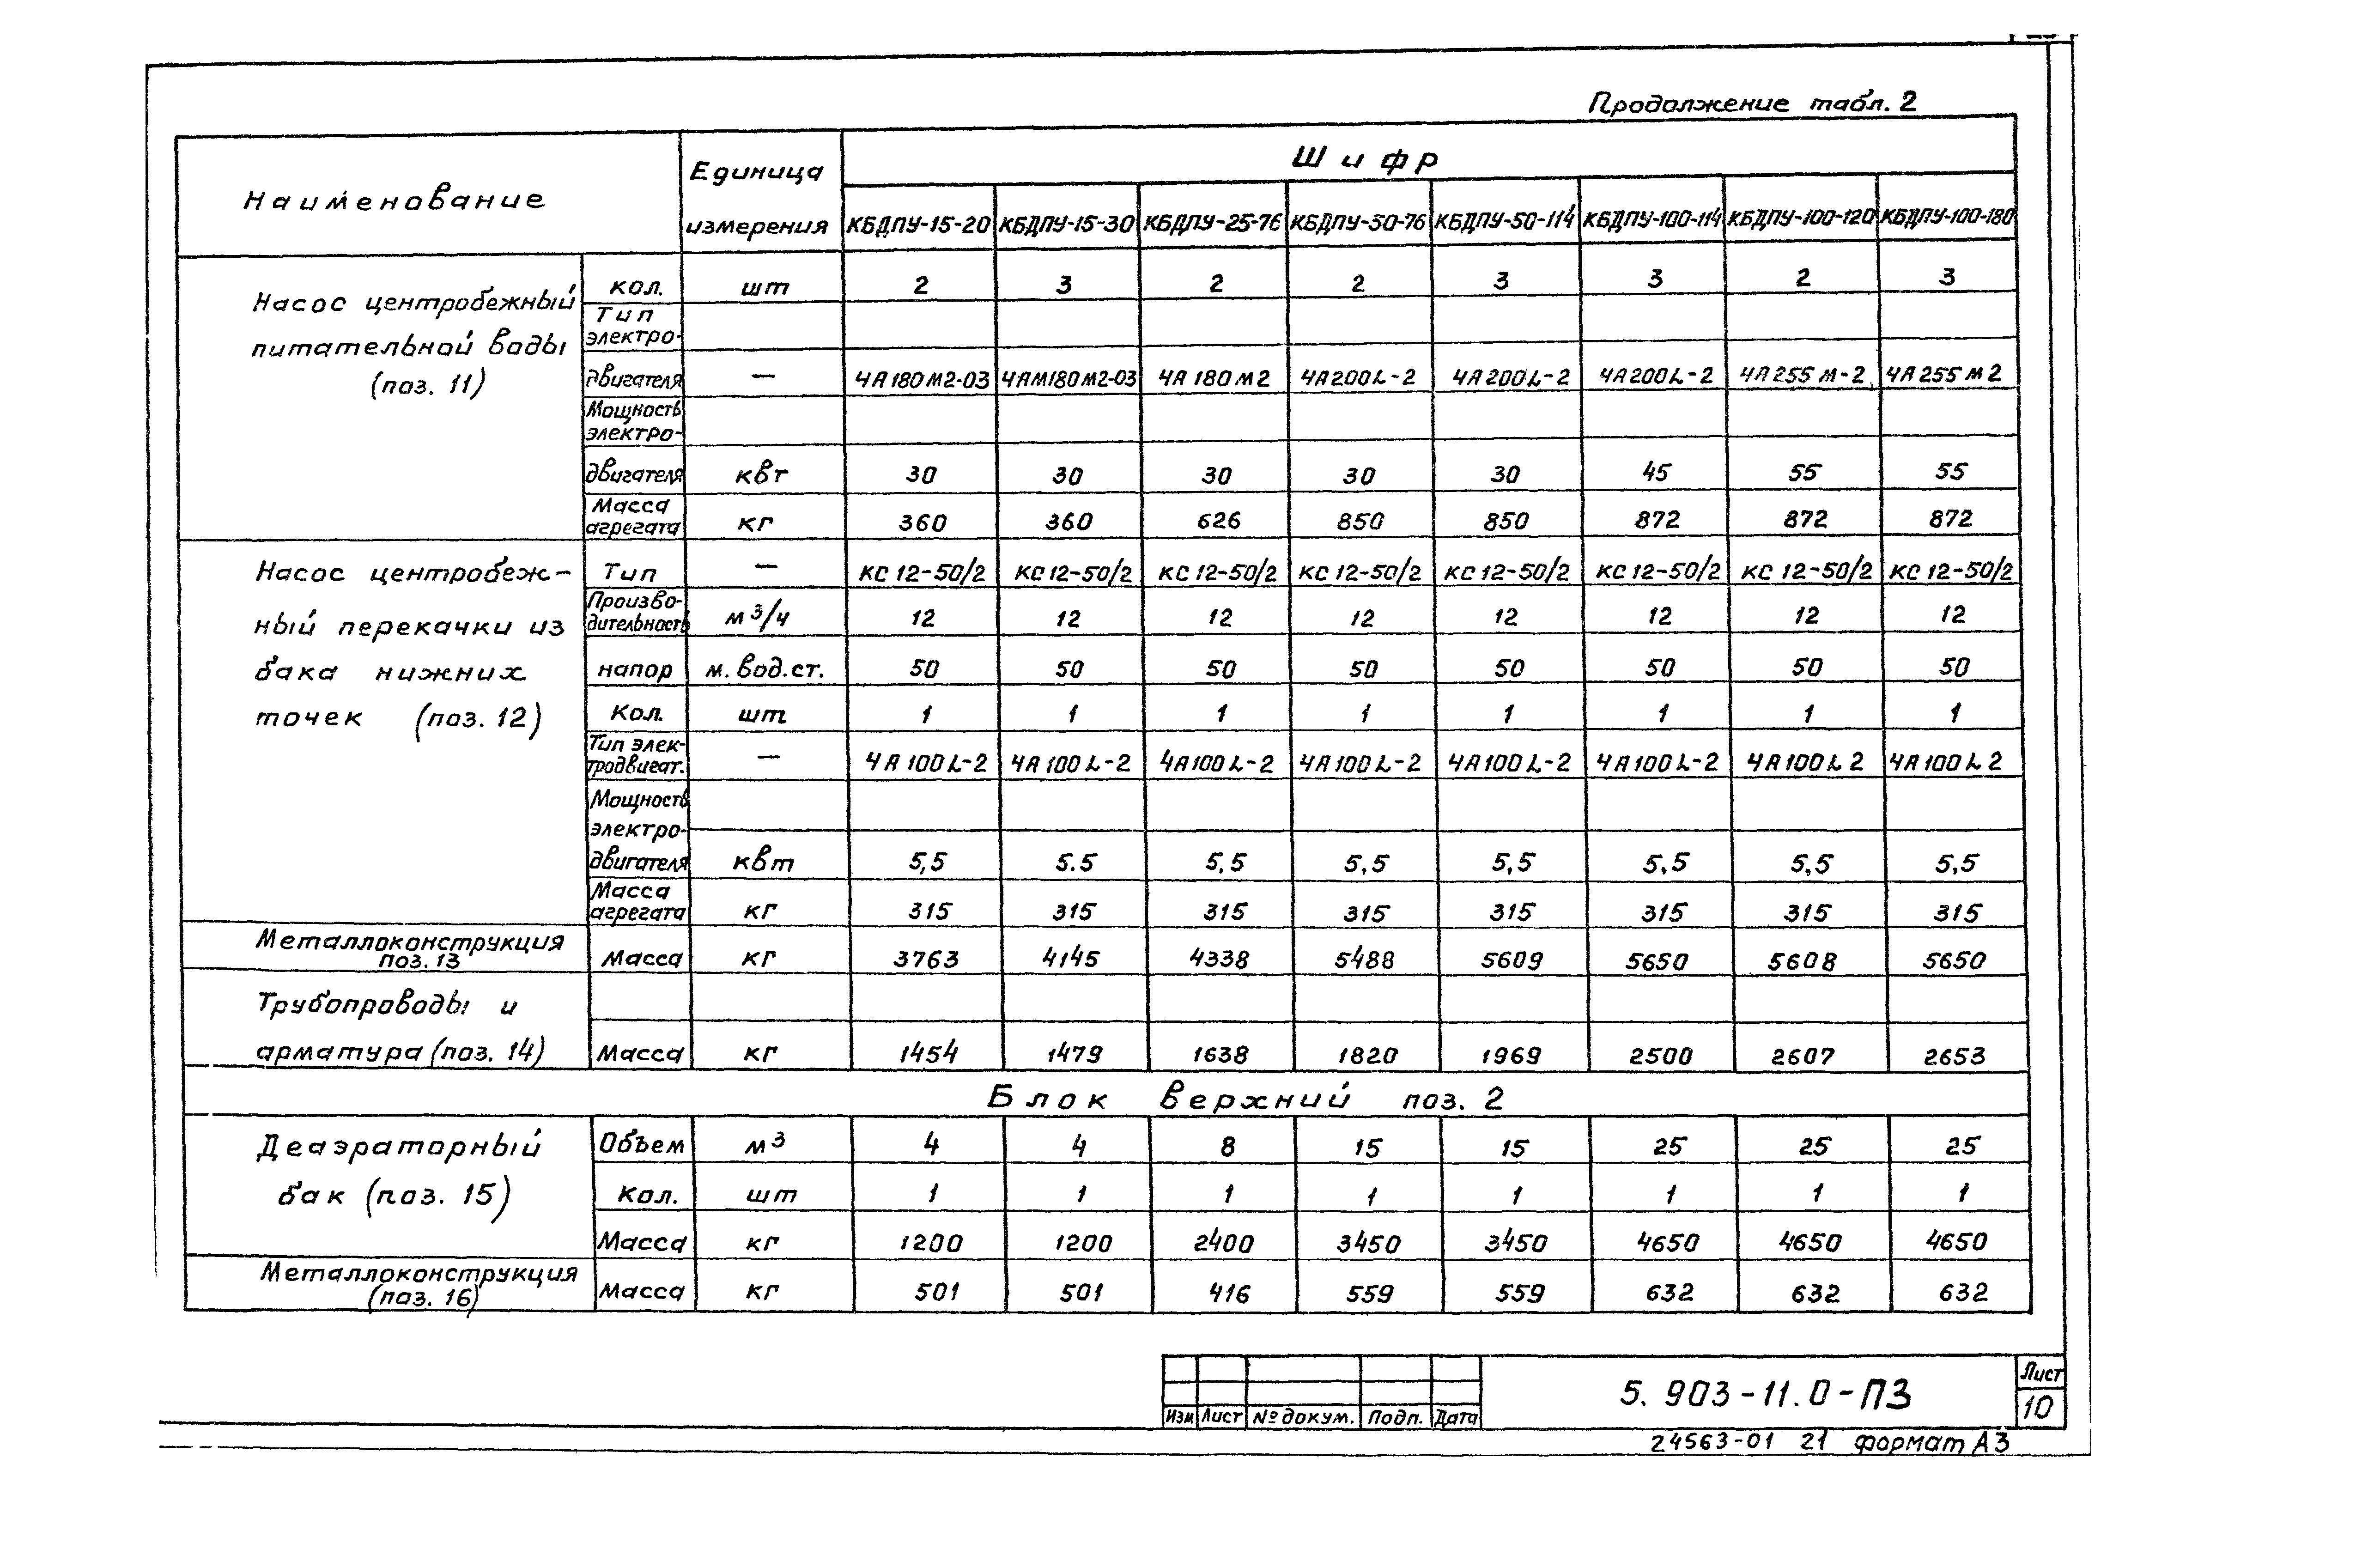 Продолжение табл. 2
Наименование Единица измерения Шифр
КБДПУ-15-20 КБДПУ-15-30 КБДПУ-25-76 КБДПУ-50-76 КБДПУ-50-114 КБДПУ-100-114 КБДПУ-100-120 КБДПУ-100-180
Насос центробежный питательной воды (поз. 11)
кол. шт 2 3 2 2 3 3 2 3
Тип электро-
двигателя — 4А180М2-03 4АМ180М2-03 4А 180 М2 4А200L-2 4А200L-2 4А200L-2 4А255 М-2 4А255 М2
Мощность электро-
двигателя квт 30 30 30 30 30 45 55 55
Масса агрегата кг 360 360 626 850 850 872 872 872
Насос центробеж-
ный перекачки из
бака нижних
точек (поз. 12)
Тип — КС 12-50/2 КС 12-50/2 КС 12-50/2 КС 12-50/2 КС 12-50/2 КС 12-50/2 КС 12-50/2 КС 12-50/2
Произво-
дительность м3/ч 12 12 12 12 12 12 12 12
напор м. вод.ст. 50 50 50 50 50 50 50 50
Кол. шт 1 1 1 1 1 1 1 1
Тип элек-
тродвигат. — 4А 100L-2 4А 100L-2 4А100L-2 4А 100L-2 4А100L-2 4А100L-2 4А100L 2 4А100L 2
Мощность
электро-
двигателя квт 5,5 5.5 5,5 5,5 5,5 5,5 5,5 5,5
Масса
агрегата кг 315 315 315 315 315 315 315 315
Металлоконструкция
поз. 13 Масса кг 3763 4145 4338 5488 5609 5650 5608 5650
Трубопроводы и
арматура (поз. 14) Масса кг 1454 1479 1638 1820 1969 2500 2607 2653
Блок верхний поз. 2
Деаэраторный
бак (поз. 15)
Объем м3 4 4 8 15 15 25 25 25
Кол. шт 1 1 1 1 1 1 1 1
Масса кг 1200 1200 2400 3450 3450 4650 4650 4650
Металлоконструкция
(поз. 16) Масса кг 501 501 416 559 559 632 632 632
Изм Лист № докум. Подп. Дата
5. 903-11.0-ПЗ
Лист
10
24563-01 21 формат А3